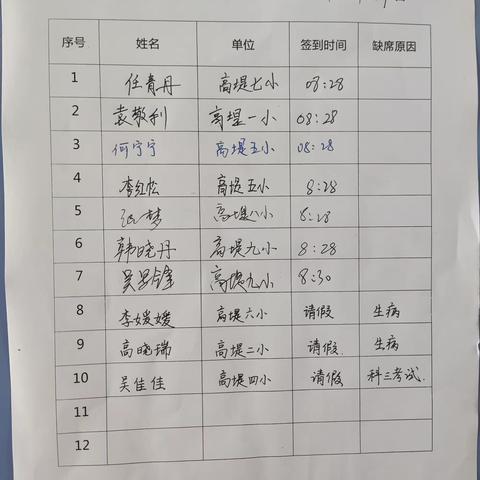 序号 姓名 单位 签到时间 缺席原因
1 任青丹 高堤七小 08:28
2 袁敬利 高堤一小 08:28
3 何宁宁 高堤五小 08:28
4 李红松 高堤五小 8:28
5 张梦 高堤八小 8:28
6 韩晓丹 高堤九小 8:28
7 高堤九小 8:30
8 李媛媛 高堤六小 请假 生病
9 高晓瑞 高堤二小 请假. 生病
10 吴佳佳 高堤四小 请假 科三考试.
11
12